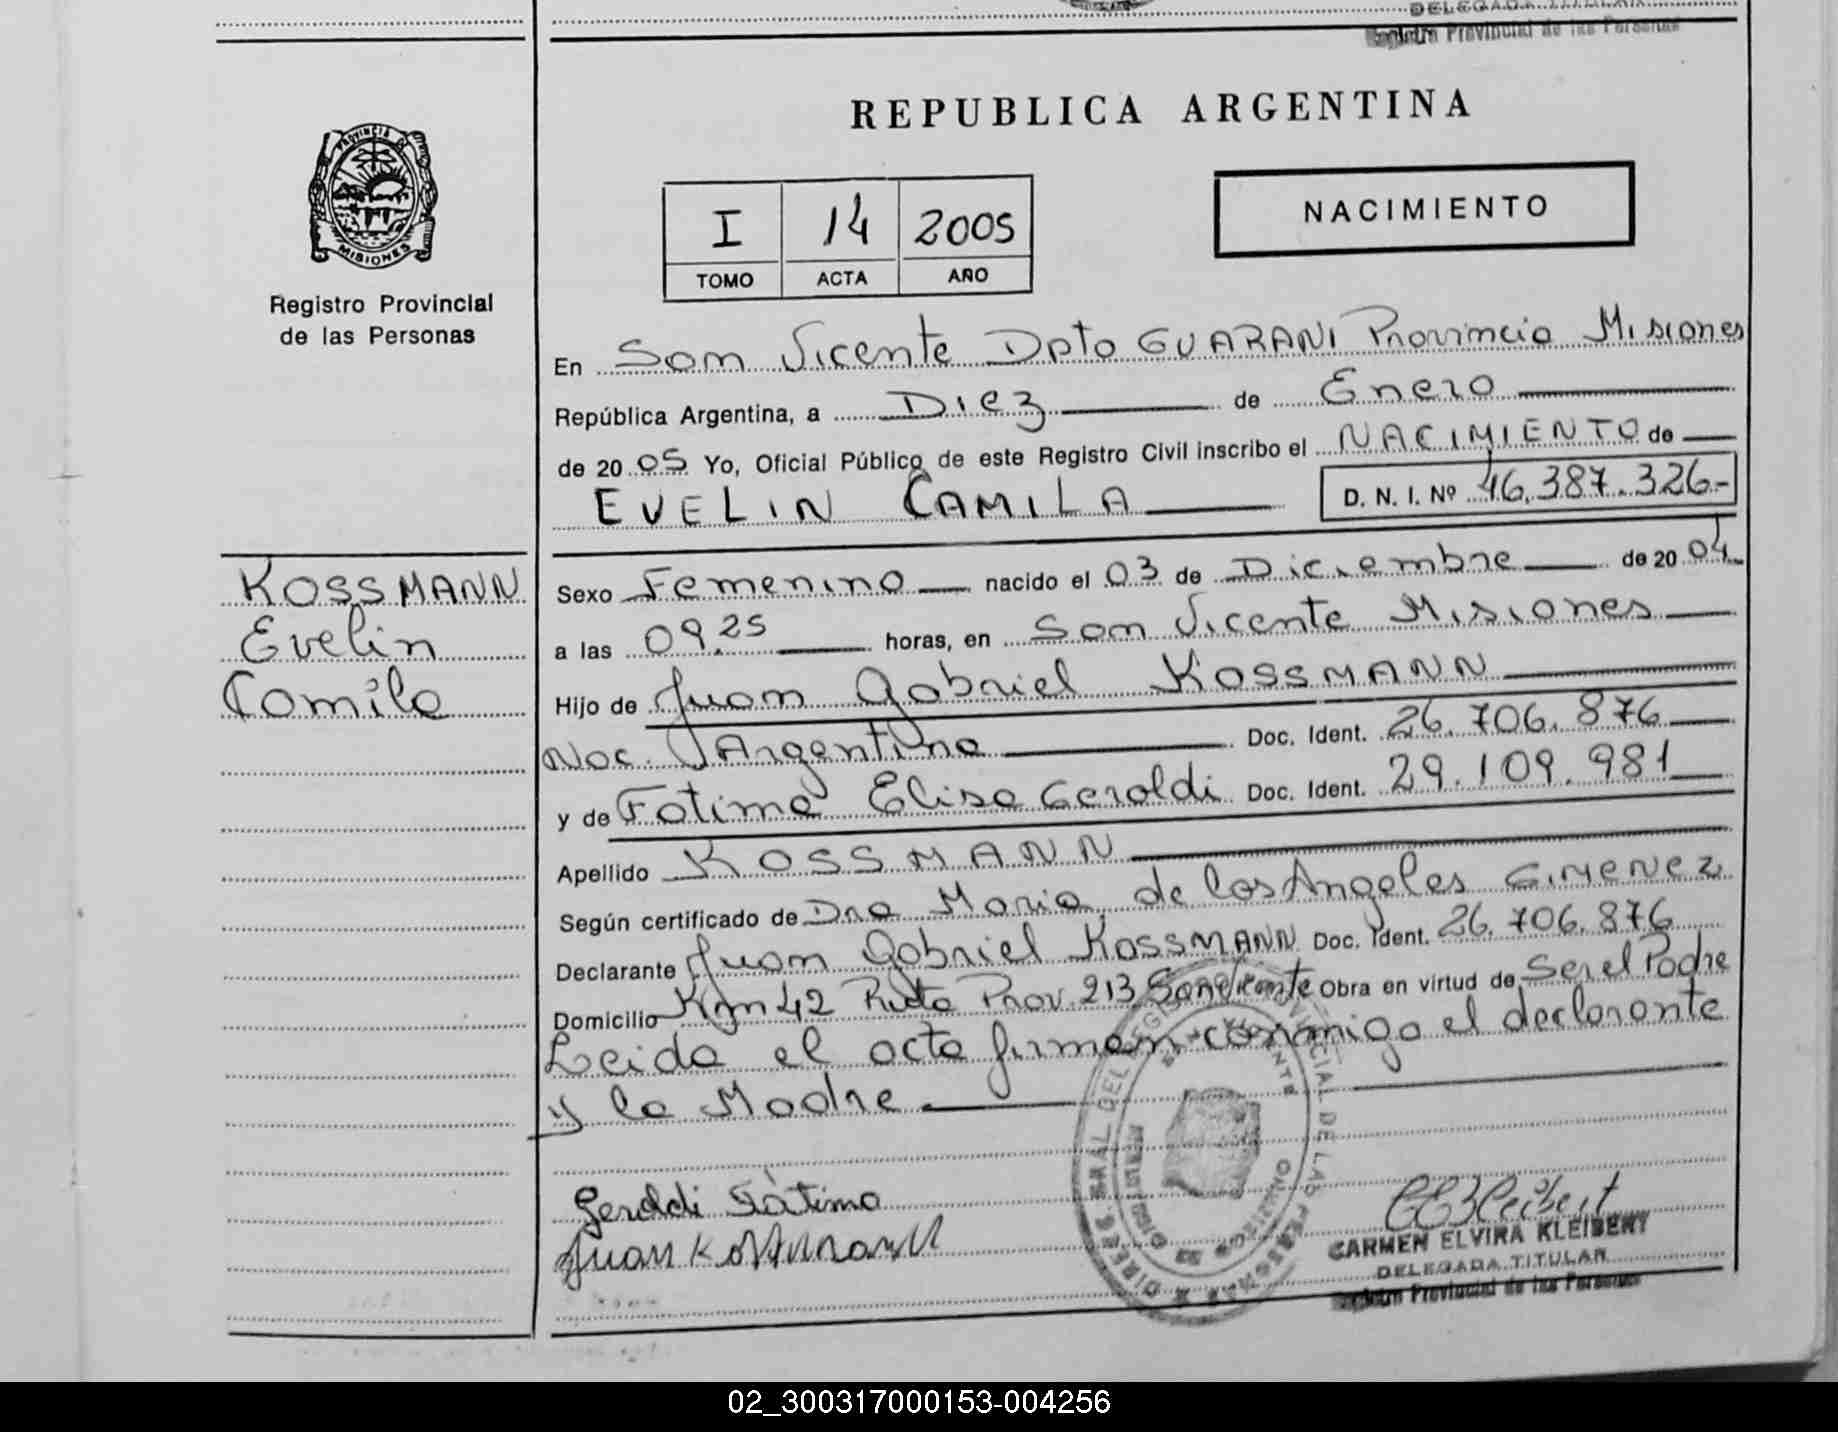 DELEGADA TITULAR
Registro Provincial de las Personas
REPUBLICA ARGENTINA
PROVINCIA DE
MISIONES
Registro Provincial
de las Personas
I 14 2005
TOMO ACTA AÑO
NACIMIENTO
En San Vicente Dpto GUARANI Provincia Misiones
República Argentina, a Diez de Enero
de 2005 Yo, Oficial Público de este Registro Civil inscribo el NACIMIENTO de
EVELIN CAMILA D. N. I. Nº 46.387.326-
KOSSMANN
Evelin
Camila
Sexo Femenino nacido el 03 de Diciembre de 2004
a las 09.25 horas, en San Vicente Misiones
Hijo de Juan Gabriel KOSSMANN
Nac. Argentino Doc. Ident. 26.706.876
y de Fatima Elisa Geraldi Doc. Ident. 29.109.981
Apellido KOSSMANN
Según certificado de Dra Maria de los Angeles GIMENEZ
Declarante Juan Gabriel KossMANN Doc. Ident. 26.706.876
Domicilio Km 42 Ruta Prov. 213 San Vicente Obra en virtud de Ser el Padre
Leida el acta firman conmigo el declarante
y la Madre
Geraldi Fátima
Juan Kossmann
CARMEN ELVIRA KLEIBERT
DELEGADA TITULAR
Registro Provincial de las Personas
02_300317000153-004256